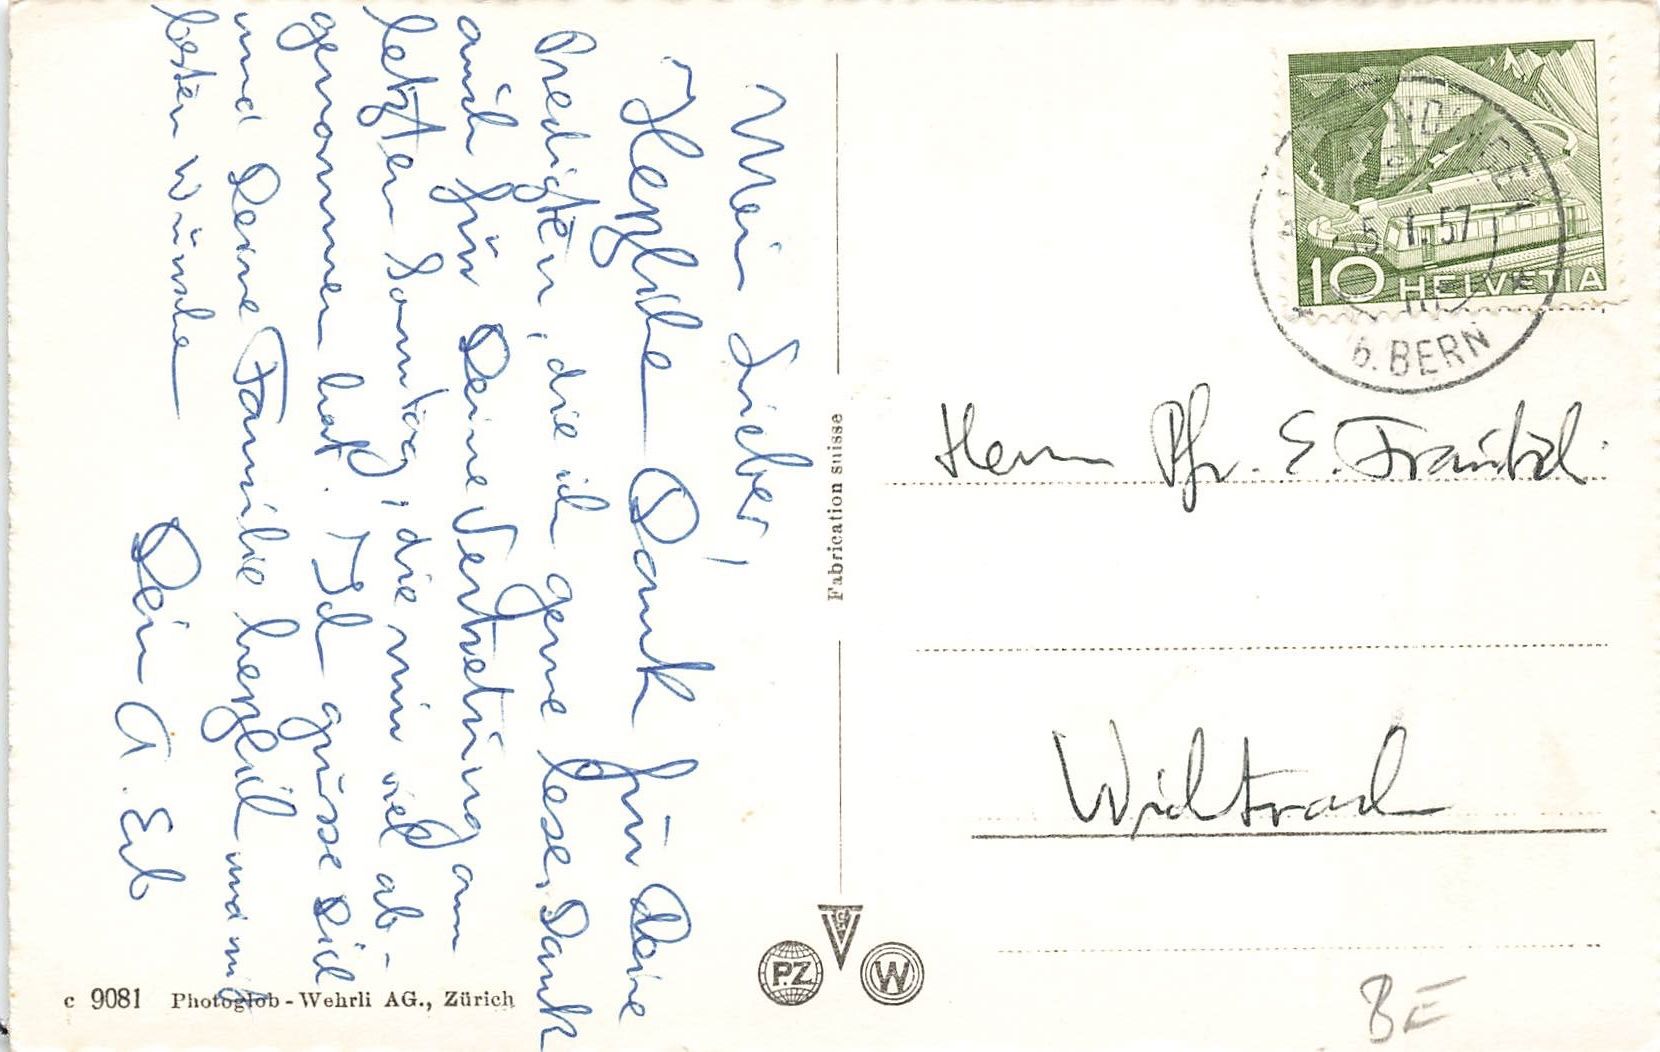 Mein Lieber,
Herzliche Dank für Deine
Predigten, die ich gerne lese, Dank
auch für Deine Vertretung am
letzten Sonntag, die mir viel ab-
genommen hat. Ich grüsse Dich
und Deine Familie herzlich und mit
besten Wünschen
Dein A. Erb
Fabrication suisse
c 9081 Photoglob - Wehrli AG., Zürich
PZ
W
10 HELVETIA
5. I. 57
b. BERN
Herrn Pfr. E.
Wichtrach
BE